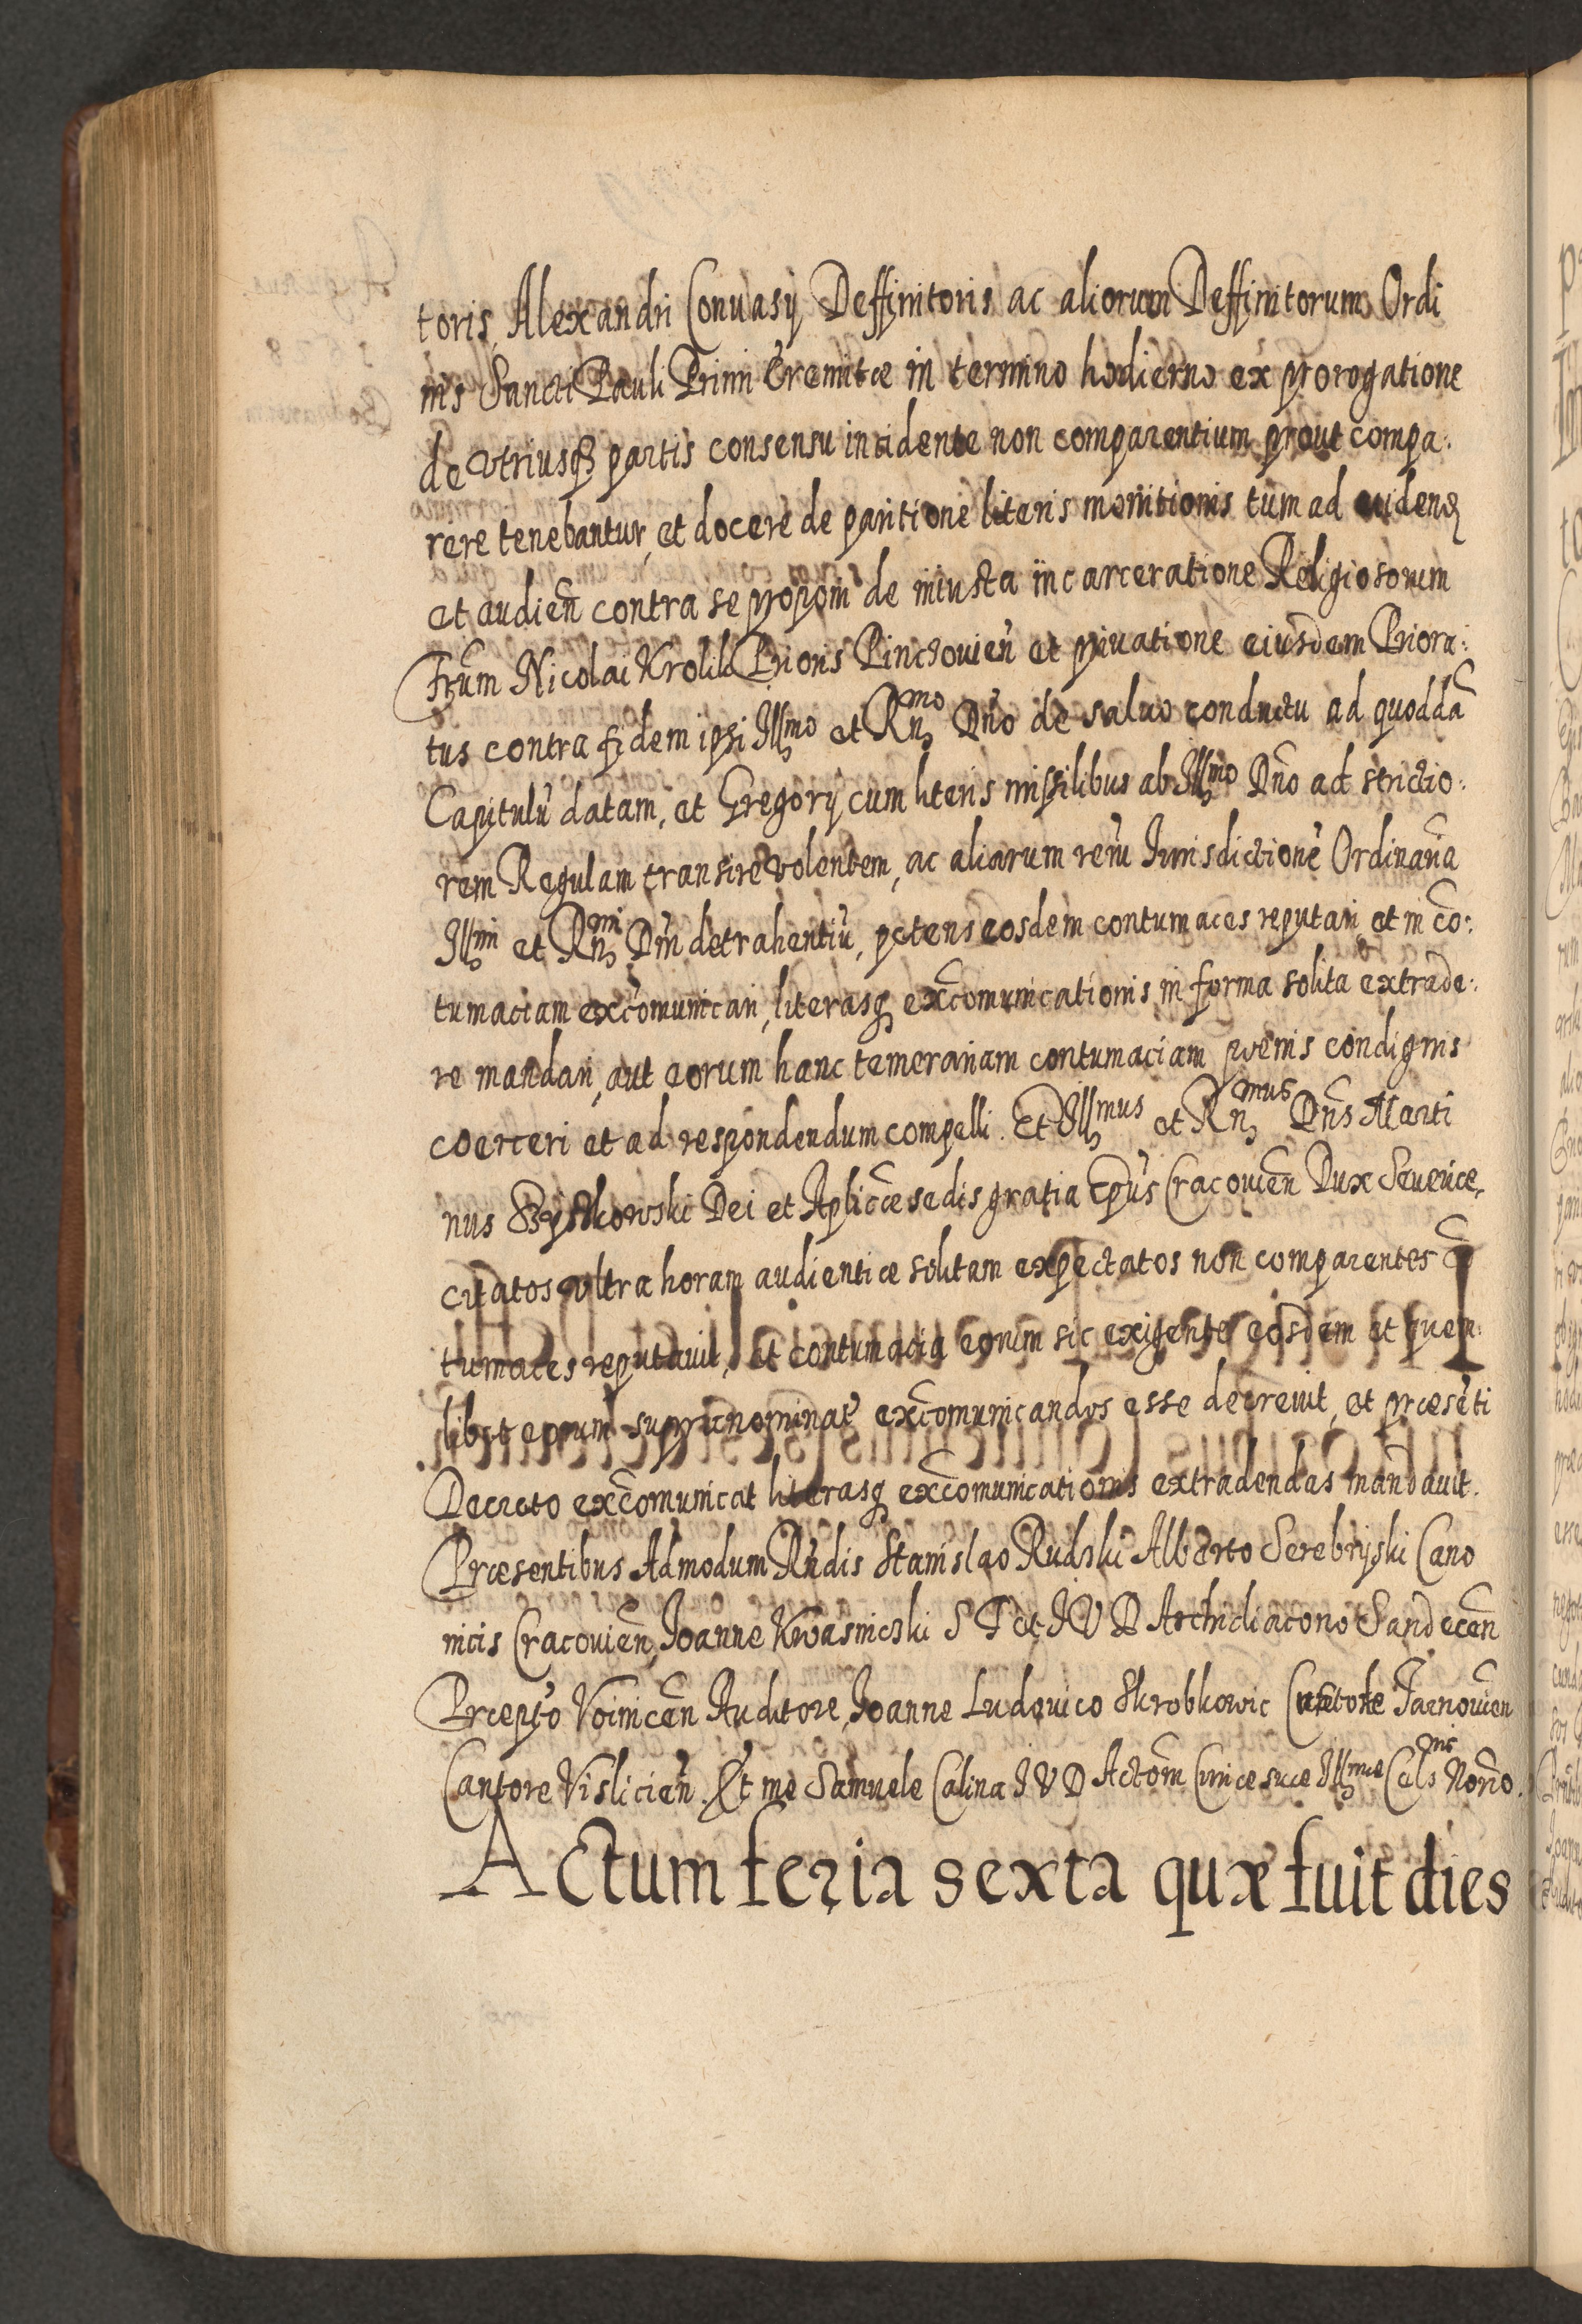 toris, Alexandri Conuasÿ Deffinitoris ac aliorum Deffinitorum Ordi
nis Sancti Pauli Primi Eremitæ in termino hodierno ex prorogatione
de vtriusq partis consensu incidente non comparentium prout compa:
rere tenebantur, et docere de paritione literis monitionis tum ad uidend
et audien̄ contra se proponi de iniusta incarceratione Religiosorum
Frum̄ Nicolai Krolik Prioris Pinczouien̄ et priuatione eiusdem Priora:
tus contra fidem ipsi Illmo et Rndmo Dno de saluo conductu ad quoddā
Capitulū datam, et Gregorÿ cum literis missilibus ab Illmo Dno ad strictio:
rem Regulam transire volentem, ac aliarum rerū Iurisdictionē Ordinaria
Illmi et Rndmi Dni detrahentiū, petens eosdem contumaces reputari et in cō:
tumaciam excōmunicari, literasq excōmunicationis in forma solita extrade:
re mandari, aut eorum hanc temerariam contumaciam pœnis condignis
coerceri et ad respondendum compelli. Et Illmus et Rndmus Dns Marti
nus Szyszkowski Dei et Aplicæ sedis gratia Epus Cracouien̄ Dux Seueriæ,
citatos vltra horam audientiæ solitam expectatos non comparentes cō
tumaces reputauit, et contumacia eorum sic exigente eosdem et quem:
libet eorum supranominat excōmunicandos esse decreuit, et præsēti
Decreto excōmunicat literasq excōmunicationis extradendas mandauit.
Præsentibus Admodum Rndis Stanislao Rudzki Alberto Serebryski Cano
nicis Cracouien̄, Ioanne Kwasniczki S T et I V D Archidiacono Sandecen̄
Præpto Voinicen̄ Auditore, Ioanne Ludouico Skrobkowic Custode Tarnouien̄
Cantore Vislicien̄. Et me Samuele Calina I V D Actorm Curiæ suæ Illmæ Celsnis Norio.
Actum feria sexta quæ fuit dies